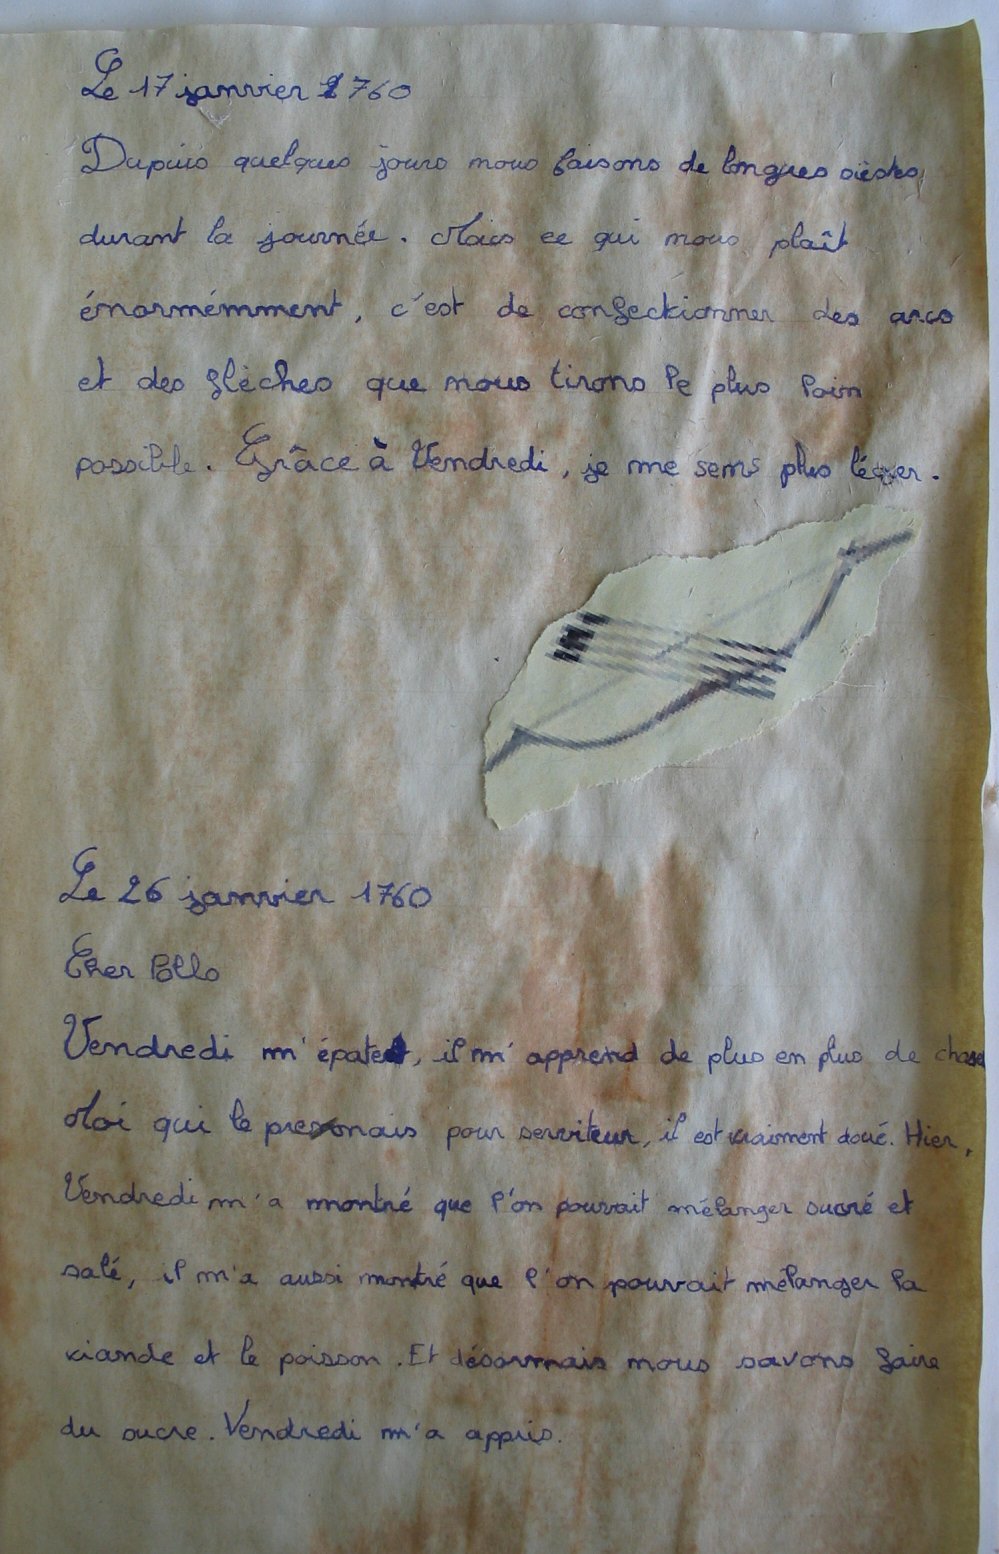 Le 17 janvier 1760
Depuis quelques jours nous faisons de longues siestes
durant la journée. Mais ce qui nous plaît
énormémment, c'est de confectionner des arcs
et des flèches que nous tirons le plus loin
possible. Grâce à Vendredi, je me sens plus léger.
Le 26 janvier 1760
Cher
Vendredi m'épate, il m'apprend de plus en plus de chose
Moi qui le prenonais pour serviteur, il est vraiment doué. Hier,
Vendredi m'a montré que l'on pouvait mélanger sucré et
salé, il m'a aussi montré que l'on pouvait mélanger la
viande et le poisson. Et désormais nous savons faire
du sucre. Vendredi m'a appris.